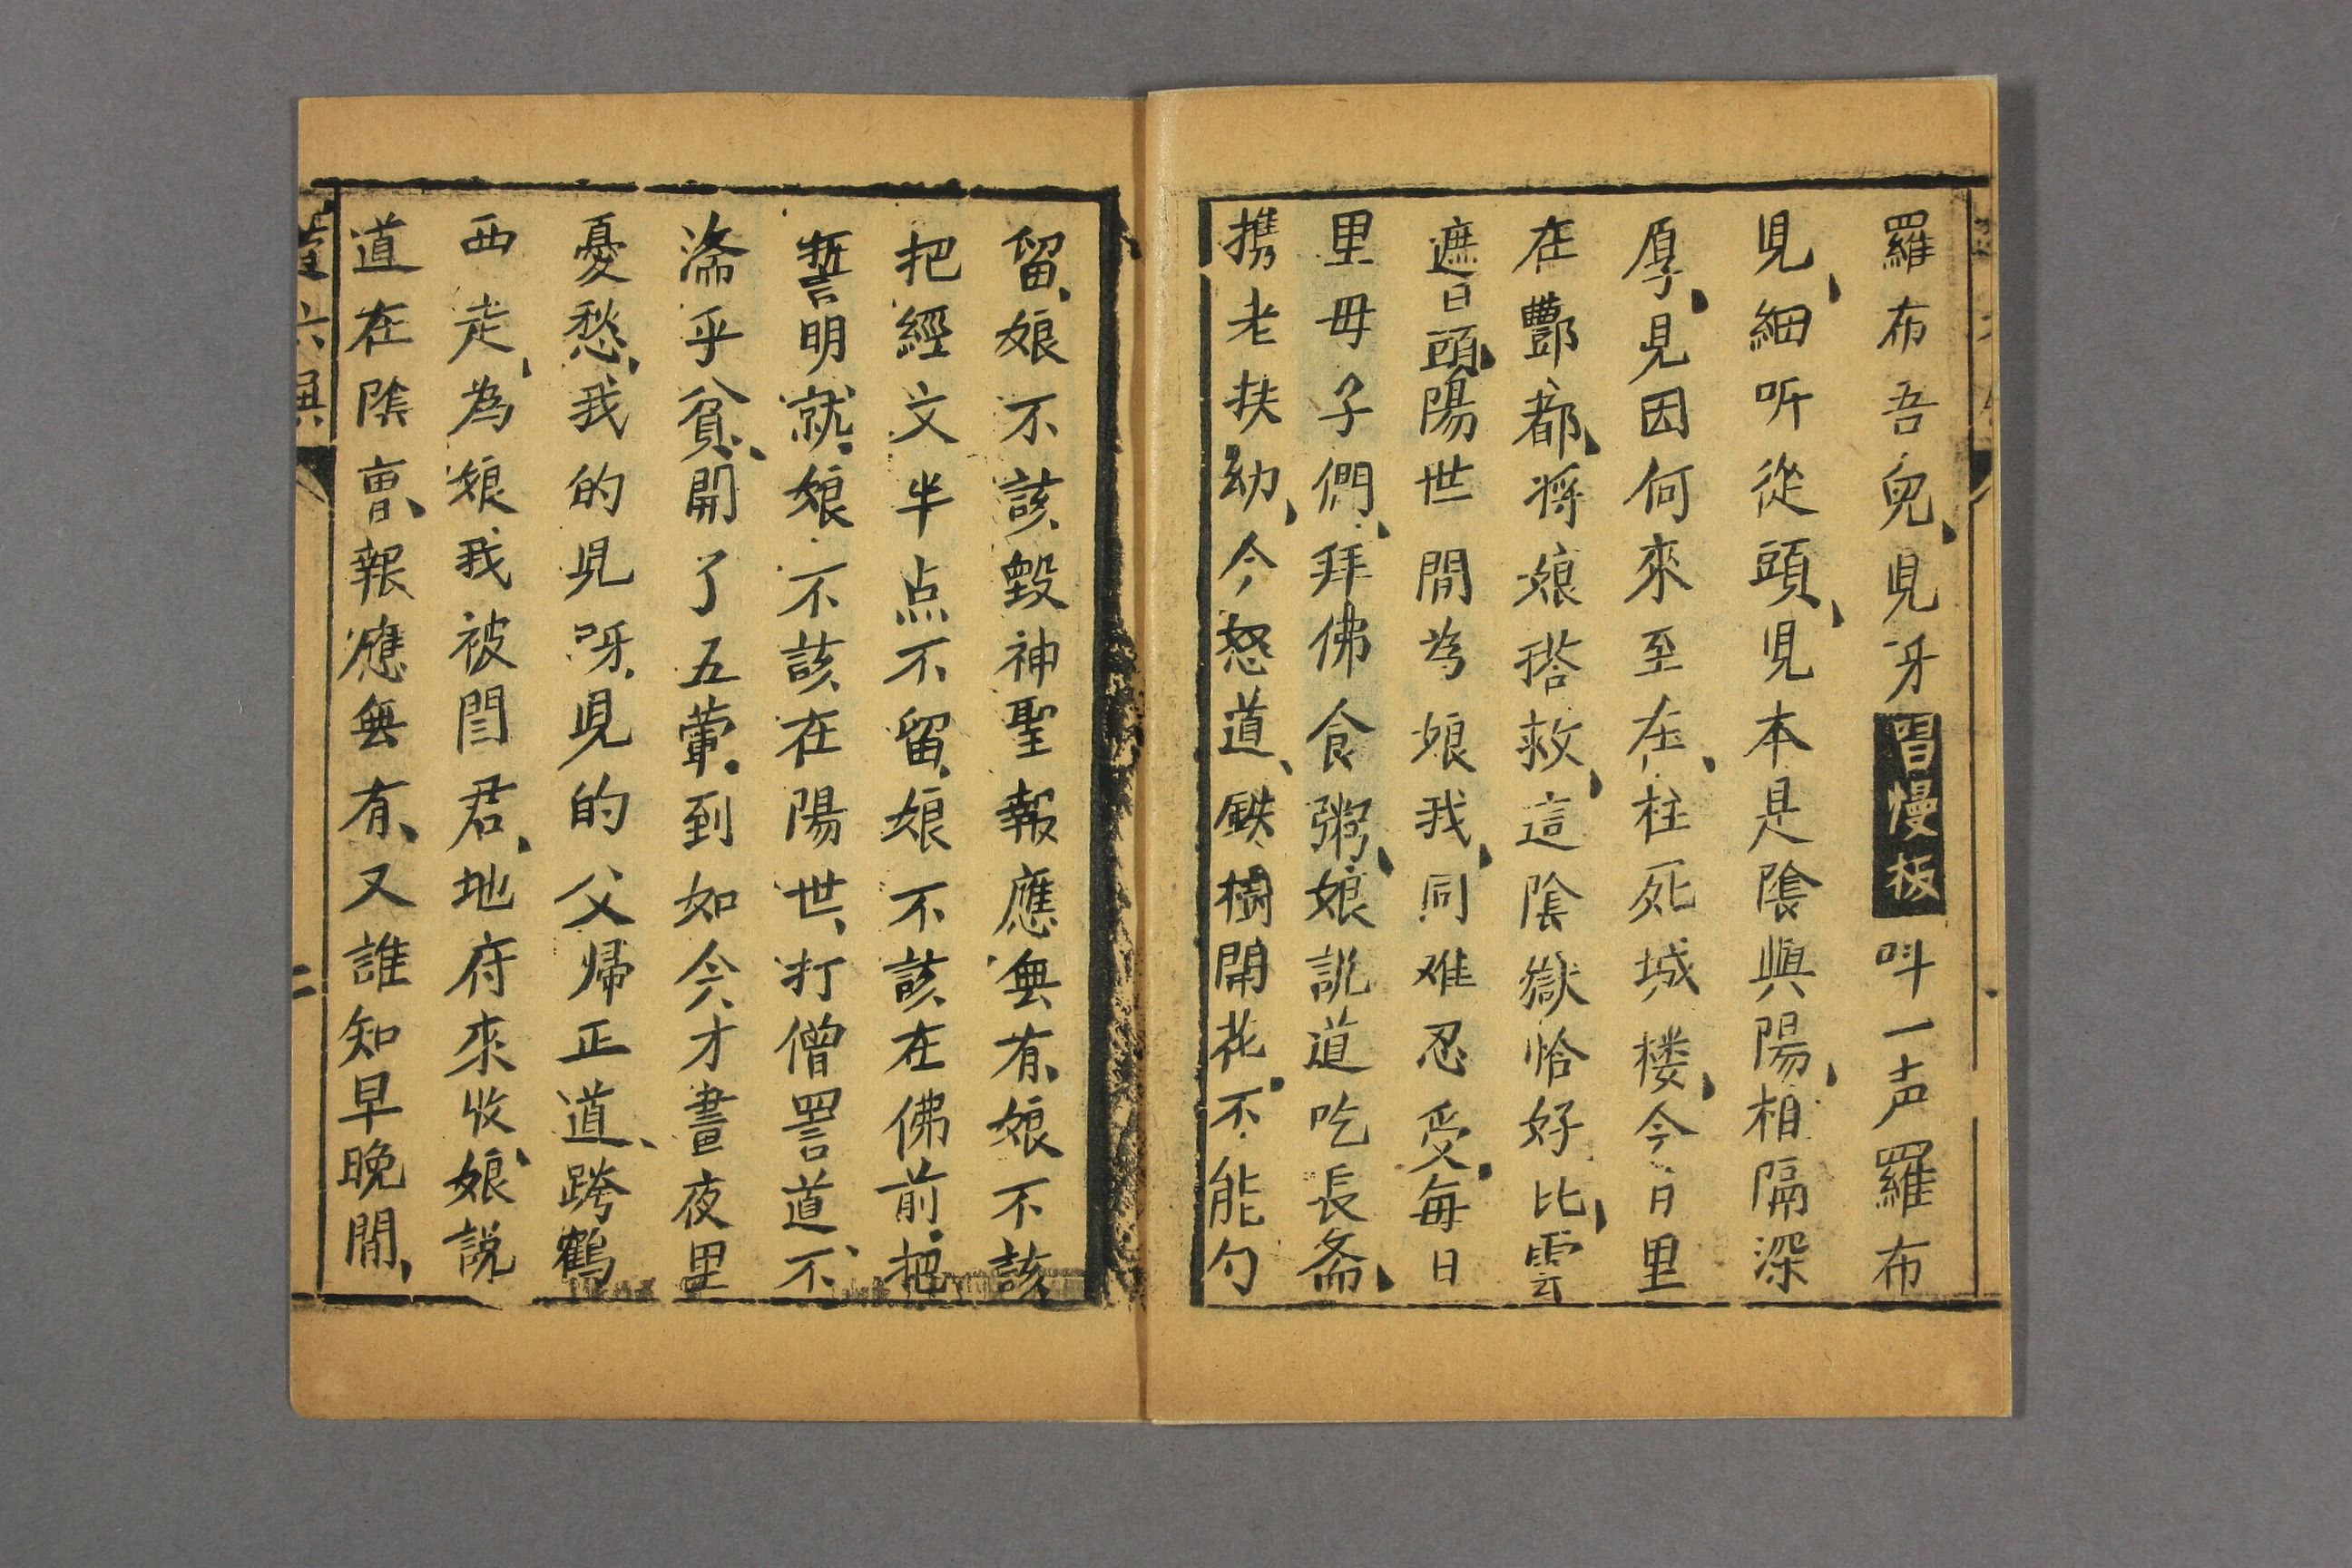 羅布吾兒、見牙慢板呌一声羅布
見、細听從頭、見本是隂與陽、相隔深
厚、見因何來至在、枉死城楼、今日里
在酆都、将娘搭救、這隂獄恰好比、雲
遮日頭、陽世間為娘我、同难忍受、每日
里毋子們、拜佛食粥、娘説道吃長斋、
携老扶幼、今怒道、鉄樹開花、不能勾
留、娘不該、毀神聖報應無有、娘不該、
把經文半点不留、娘不該、在佛前、把
誓明就、娘不該、在陽世、打僧詈道、不
濡乎貧、開了五葷、到如今、才晝夜里
憂愁、我的見呀、見的父帰正道、跨鶴
西走、為娘我被閻君、地府來收、娘説
道在隂曺、報應無有、又誰知早晚間、
六
二